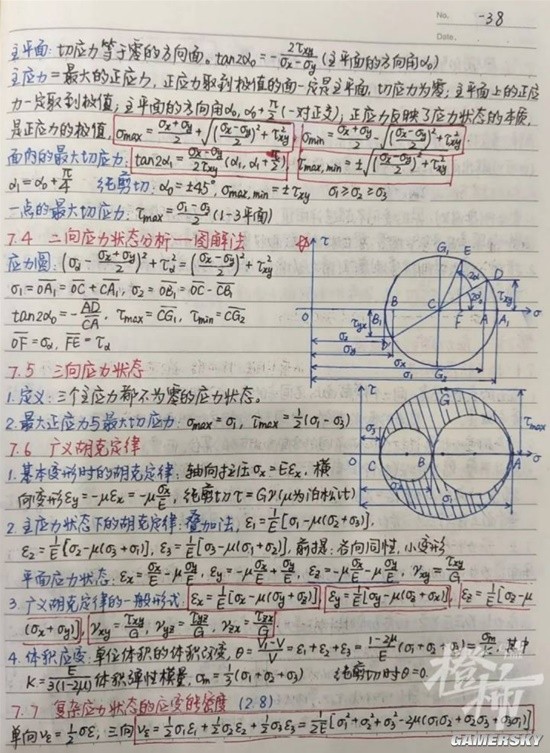 No. -38
Date.
主平面: 切应力等于零的方向面。tan2α₀=-2τxy/(σx-σy) (主平面的方向角α₀)
主应力=最大的正应力, 正应力取到极值的面一定是主平面, 切应力为零; 主平面上的正应
力一定取到极值; 主平面的方向角α₀, α₀+π/2(一对正交); 正应力反映了应力状态的本质,
是正应力的极值, σmax=(σx+σy)/2+√(((σx-σy)/2)²+τ²xy) σmin=(σx+σy)/2-√(((σx-σy)/2)²+τ²xy)
面内的最大切应力: tan2α₁=(σx-σy)/2τxy (α₁, α₁+π/2) τmax,min=±√(((σx-σy)/2)²+τ²xy)
α₁=α₀+π/4 纯剪切, α₀=±45°, σmax,min=±τxy σ₁≥σ₂≥σ₃
一点的最大切应力: τmax=(σ₁-σ₃)/2 (1-3平面)
7.4 二向应力状态分析—图解法
应力圆: (σα-(σx+σy)/2)²+τ²α=((σx-σy)/2)²+τ²xy
σ₁=OA₁=OC+CA₁, σ₂=OB₁=OC-CB₁
tan2α₀=-AD/CA, τmax=CG₁, τmin=CG₂
OF=σα, FE=τα
τ G₁ E D 2α 2α₀ τxy
O B₁ B C F A A₁ σ
τyx D' G₂ σ₂ σy σx σ₁
7.5 三向应力状态
1.定义: 三个主应力都不为零的应力状态。
2.最大正应力与最大切应力: σmax=σ₁, τmax=1/2(σ₁-σ₃)
τ τmax σ₃ O C B A σ σ₂ σ₁
7.6 广义胡克定律
1.基本变形时的胡克定律: 轴向拉压σx=Eεx, 横
向变形εy=-μεx=-μσx/E, 纯剪切τ=Gγ(μ为泊松比)
2.主应力状态下的胡克定律: 叠加法, ε₁=1/E[σ₁-μ(σ₂+σ₃)],
ε₂=1/E[σ₂-μ(σ₃+σ₁)], ε₃=1/E[σ₃-μ(σ₁+σ₂)], 前提: 各向同性, 小变形
平面应力状态: εx=σx/E-μσy/E, εy=-μσx/E+σy/E, εz=-μσx/E-μσy/E, γxy=τxy/G
3.广义胡克定律的一般形式: εx=1/E[σx-μ(σy+σz)] εy=1/E[σy-μ(σz+σx)], εz=1/E[σz-μ
(σx+σy)], γxy=τxy/G, γyz=τyz/G, γzx=τzx/G
4.体积应变: 单位体积的体积改变, θ=(V₁-V)/V=ε₁+ε₂+ε₃=(1-2μ)/E(σ₁+σ₂+σ₃)=σm/K, 其中
K=E/3(1-2μ) 体积弹性模量, σm=1/3(σ₁+σ₂+σ₃) 纯剪切时θ=0.
7.7 复杂应力状态的应变能密度 (2.8)
单向vε=1/2σε, 三向vε=1/2σ₁ε₁+1/2σ₂ε₂+1/2σ₃ε₃=1/2E[σ₁²+σ₂²+σ₃²-2μ(σ₁σ₂+σ₂σ₃+σ₃σ₁)]
橙柿
GAMERSKY